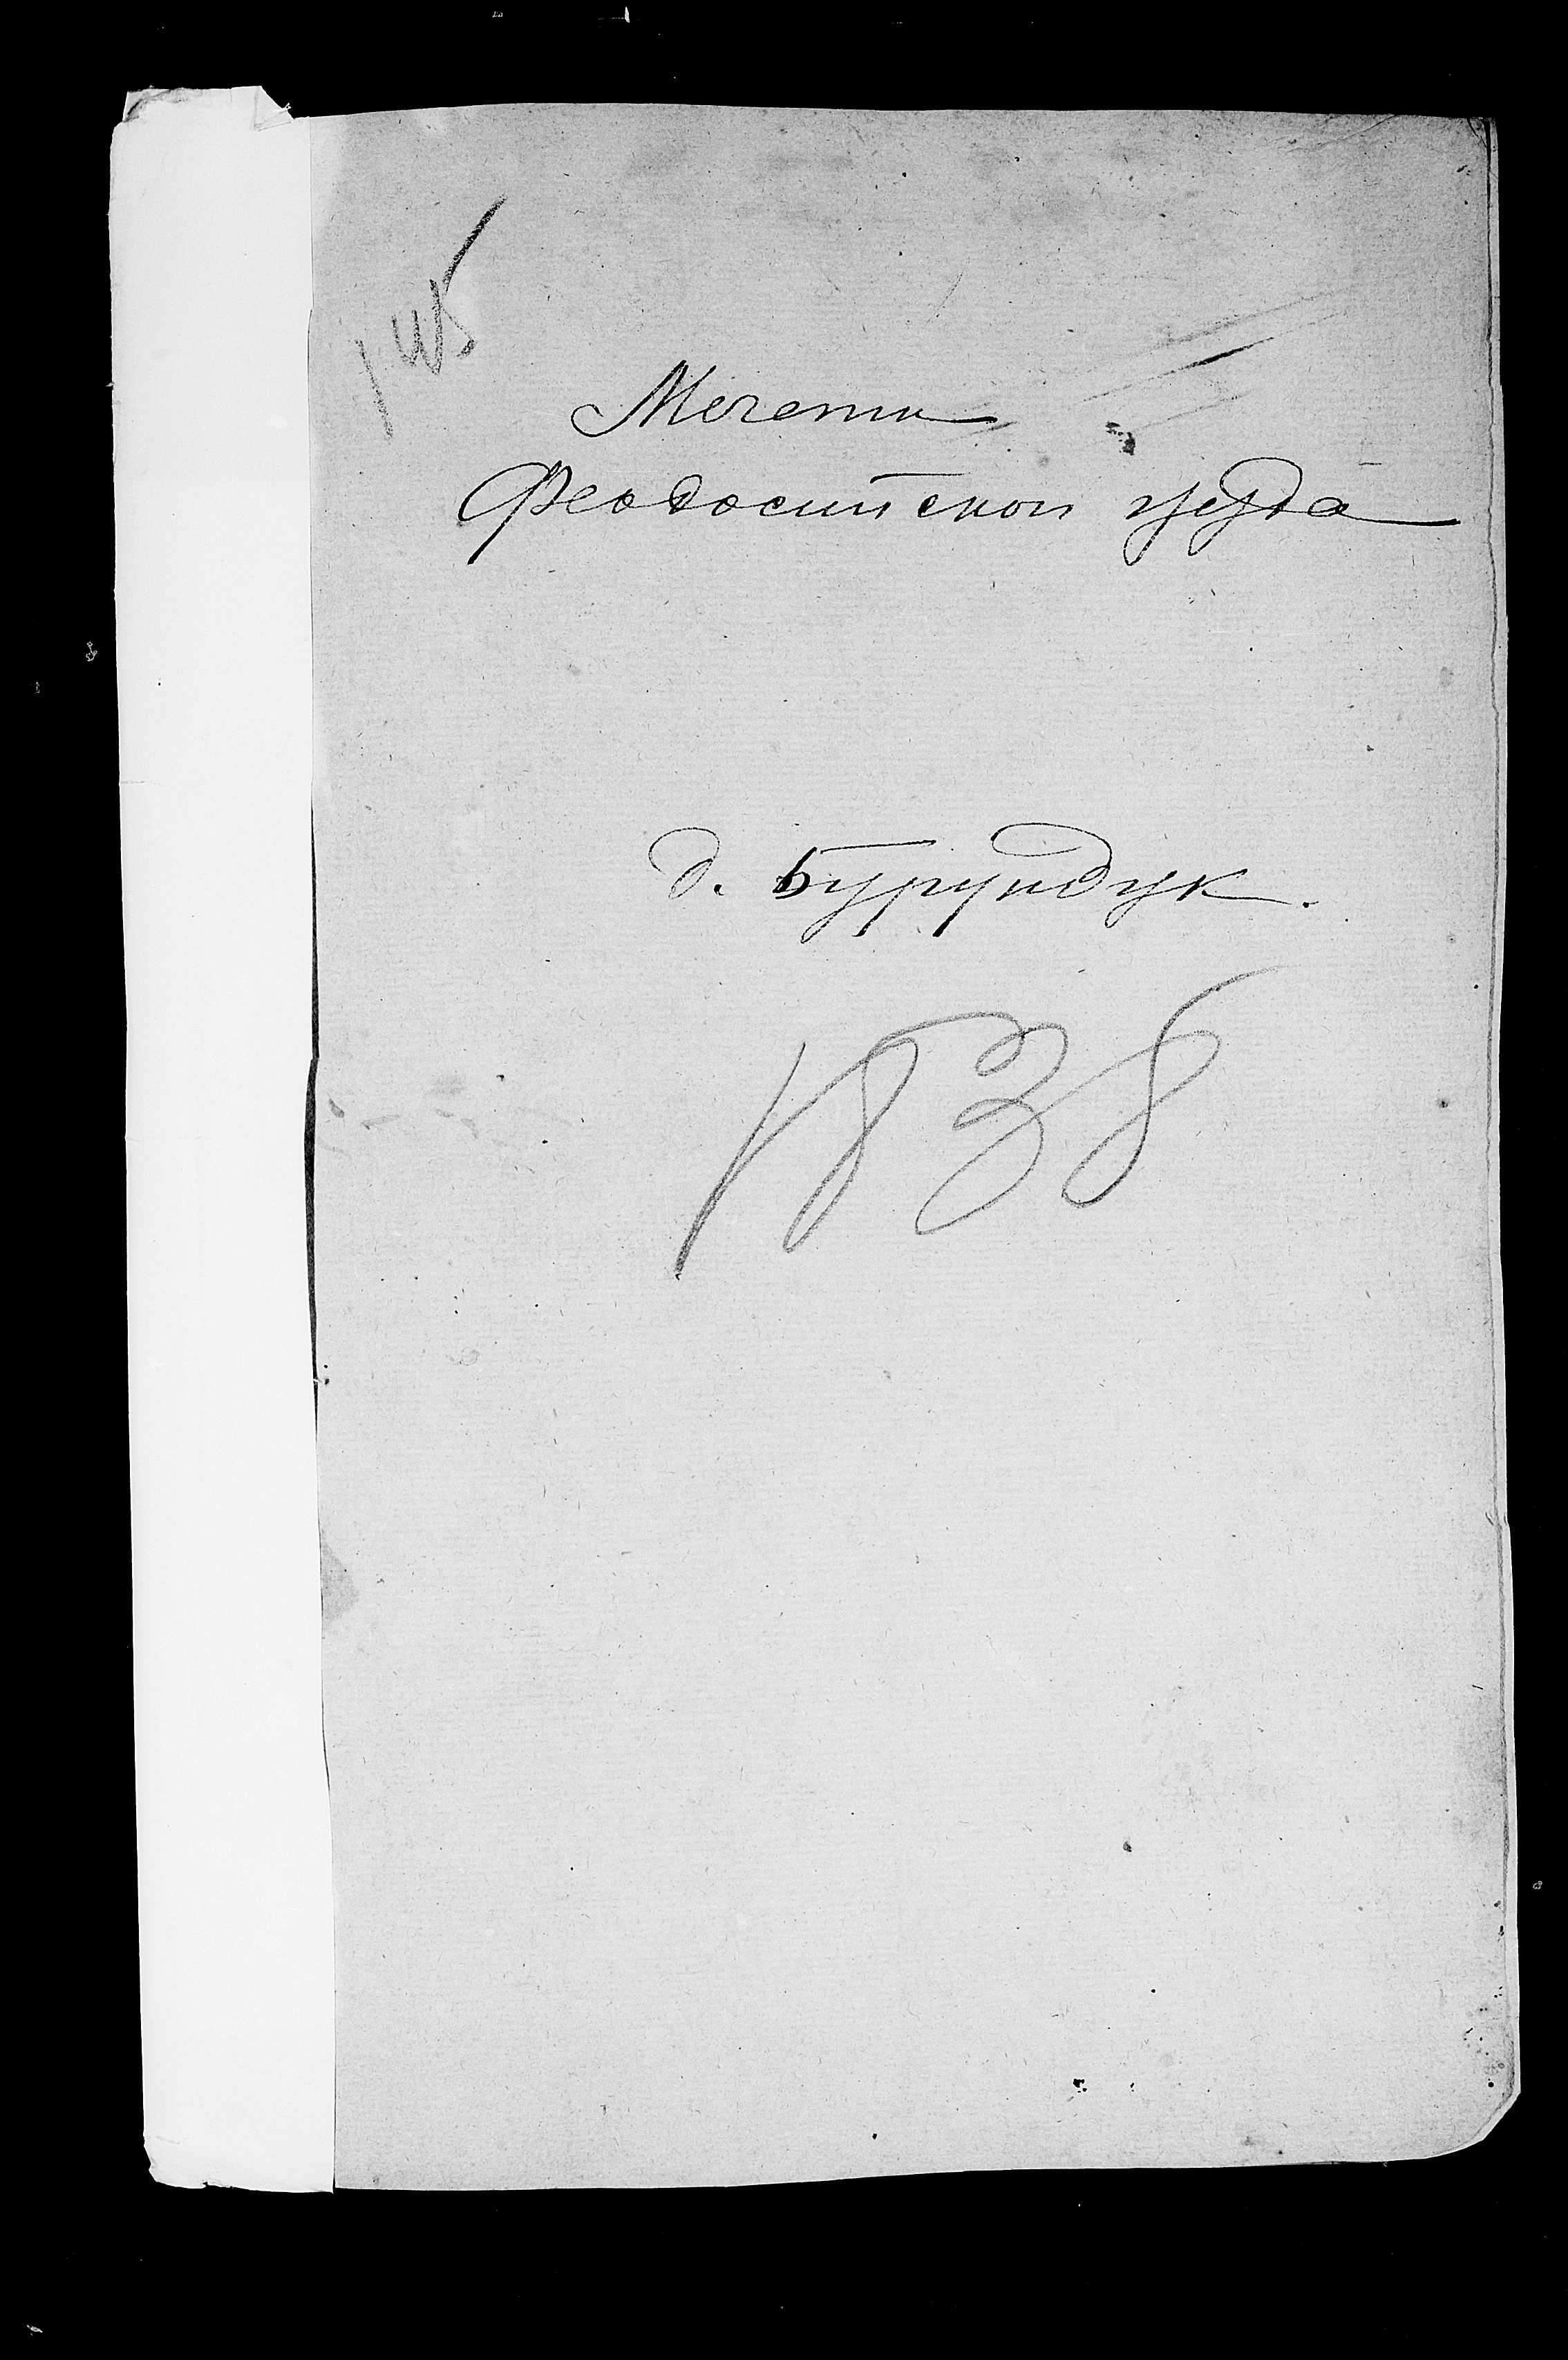 145
Мечети
Феодосийскои уезда
д. Бурундук.
1838